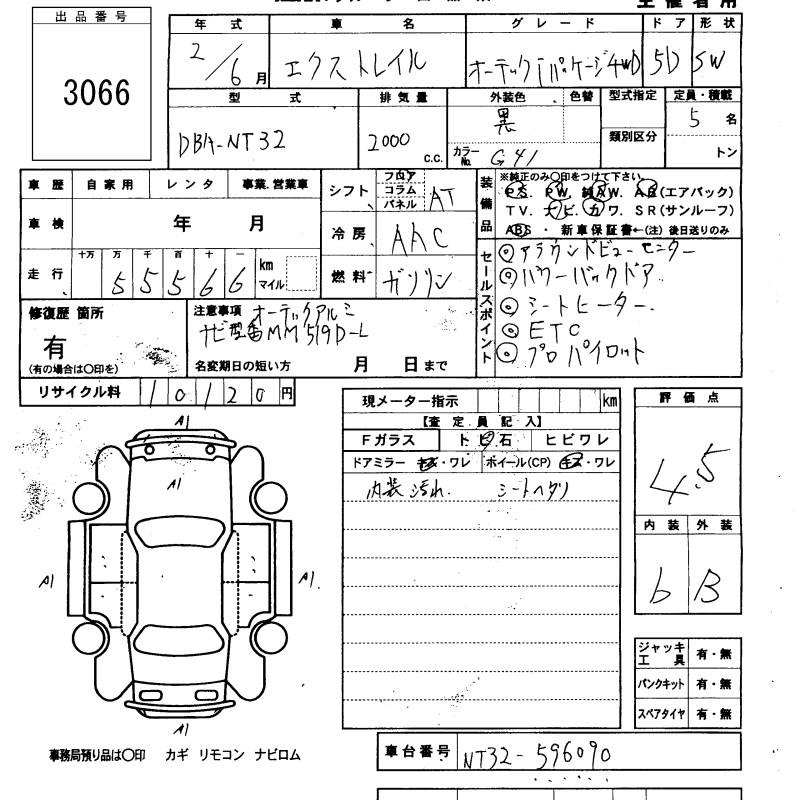 出品番号
3066
年式 車名 グレード ドア 形状
2/6月 エクストレイル オーテック iパッケージ4WD 5D SW
型式 排気量 外装色 色替 型式指定 定員・積載
DBA-NT32 2000 c.c. 黒 5名
カラーNo. G41 類別区分 トン
車歴 自家用 レンタ 事業.営業車
シフト フロア コラム パネル AT
装備品 ※純正のみ〇印をつけて下さい
P.S. P.W. 純A.W. A.B(エアバック)
T.V. ナビ. カワ. S.R(サンルーフ)
ABS ・ 新車保証書←(注) 後日送りのみ
車検 年 月
冷房 AAC
走行 十万 万 千 百 十 一
5 5 5 6 6 km マイル
燃料 ガソリン
セールスポイント
◎アラウンドビューモニター
◎パワーバックドア
◎シートヒーター.
◎ETC
◎プロパイロット
修復歴 箇所
有
(有の場合は〇印を)
注意事項 オーテックアルミ
ナビ型番MM519D-L
名変期日の短い方 月 日まで
リサイクル料 10120円
現メーター指示 km
【査定員記入】
Fガラス トビ石 ヒビワレ
ドアミラー キズ・ワレ ホイール(CP) キズ・ワレ
内装汚れ. シートヘタリ
評価点
4.5
内装 外装
b B
A1
A1
A1
A1
A1
ジャッキ工具 有・無
パンクキット 有・無
スペアタイヤ 有・無
事務局預り品は〇印 カギ リモコン ナビロム
車台番号 NT32-596090